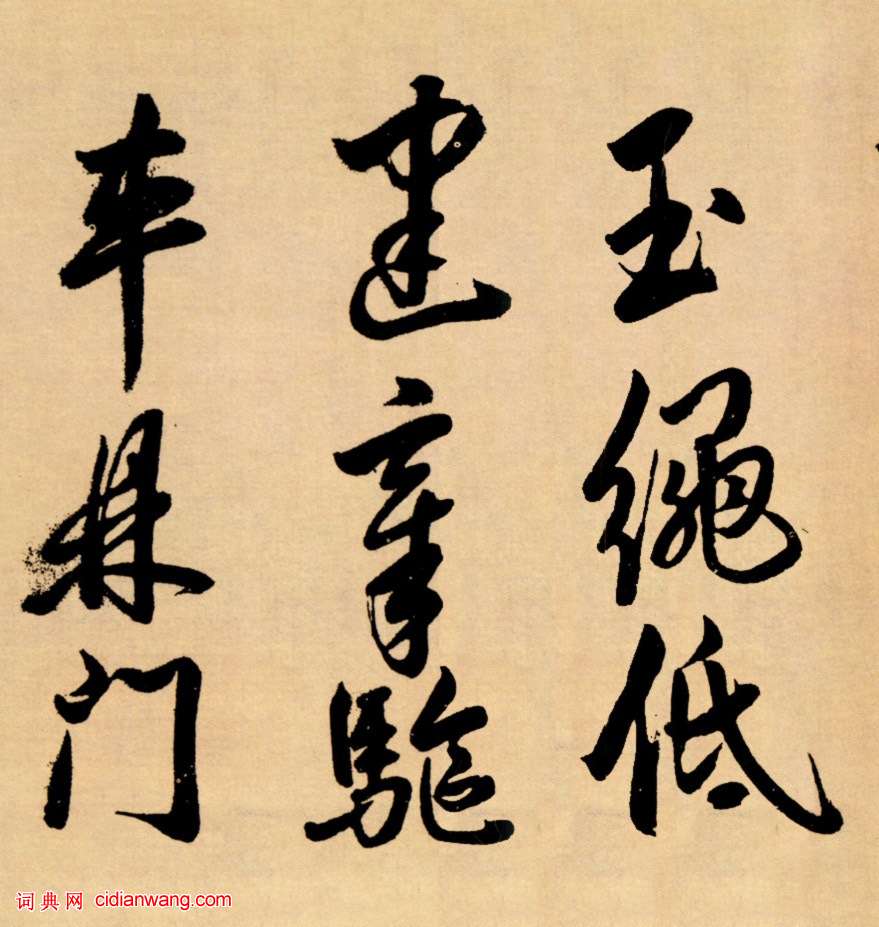 玉繩低
建章驅
車鼎門
词典网 cidianwang.com